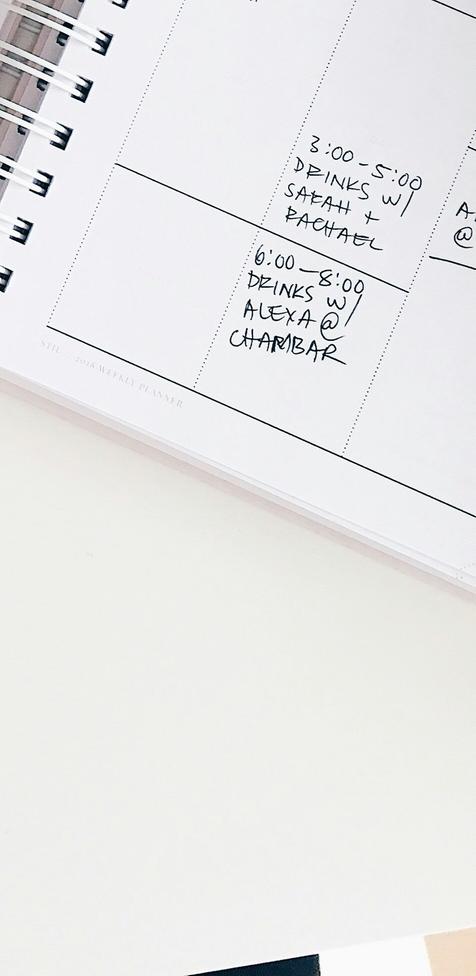 3:00-5:00
DRINKS W/
SARAH +
RACHAEL
A
@
6:00-8:00
DRINKS W/
ALEXA @
CHAMBAR
STIL 2018 WEEKLY PLANNER